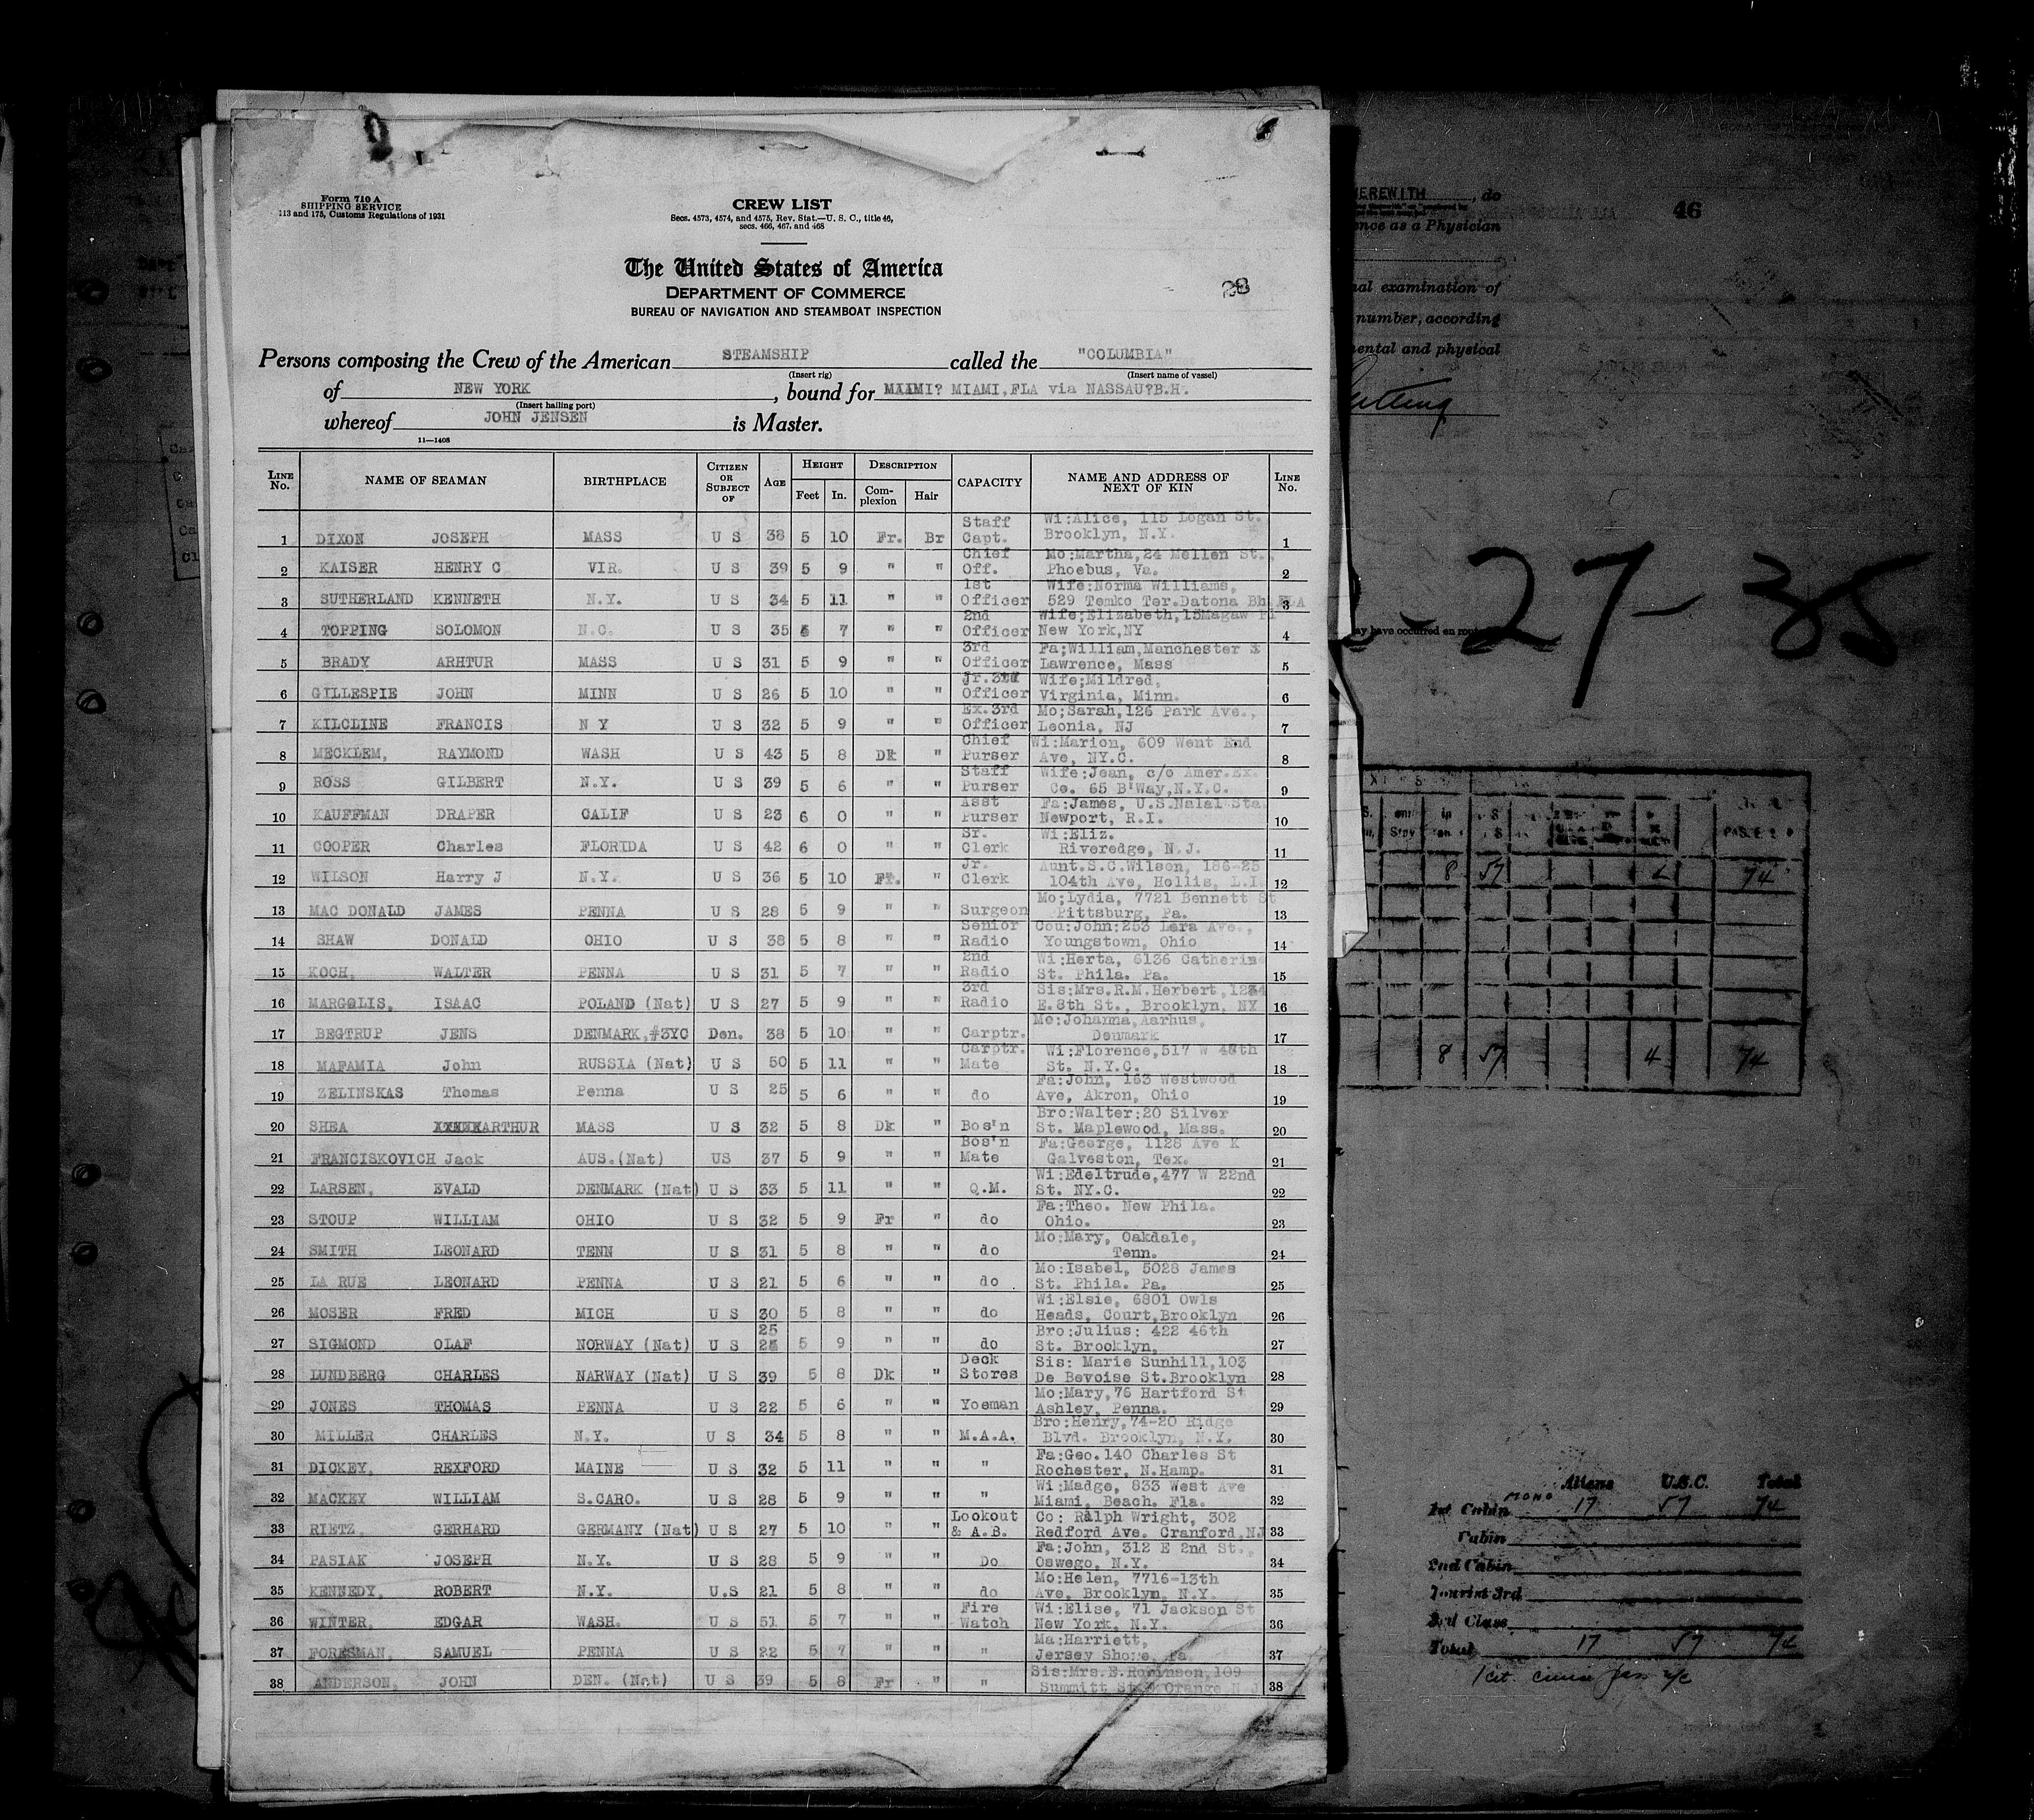 Form 710 A
SHIPPING SERVICE
113 and 175, Customs Regulations of 1931
CREW LIST
Secs. 4573, 4574, and 4575, Rev. Stat.—U. S. C., title 46,
secs. 466, 467, and 468
The United States of America
DEPARTMENT OF COMMERCE
BUREAU OF NAVIGATION AND STEAMBOAT INSPECTION
28
Persons composing the Crew of the American STEAMSHIP called the "COLUMBIA"
(Insert rig) (Insert name of vessel)
of NEW YORK, bound for MAIMI? MIAMI,FLA via NASSAU?B.H.
(Insert hailing port)
whereof JOHN JENSEN is Master.
11—1408
LINE No. NAME OF SEAMAN BIRTHPLACE CITIZEN OR SUBJECT OF AGE HEIGHT Feet In. DESCRIPTION Complexion Hair CAPACITY NAME AND ADDRESS OF NEXT OF KIN LINE No.
1 DIXON JOSEPH MASS U S 38 5 10 Fr. Br Staff Capt. Wi:Alice, 115 Logan St. Brooklyn, N.Y. 1
2 KAISER HENRY C VIR. U S 39 5 9 " " Chief Off. Mo:Martha,24 Mellen St., Phoebus, Va. 2
3 SUTHERLAND KENNETH N.Y. U S 34 5 11 " " 1st Officer Wife:Norma Williams, 529 Temko Ter.Datona Bh.FLA 3
4 TOPPING SOLOMON N.C. U S 35 7 " " 2nd Officer Wife;Elizabeth,15Magaw Pl New York,NY 4
5 BRADY ARHTUR MASS U S 31 5 9 " " 3rd Officer Fa;William,Manchester Lawrence, Mass 5
6 GILLESPIE JOHN MINN U S 26 5 10 " " Jr.3rd Officer Wife;Mildred, Virginia, Minn. 6
7 KILCLINE FRANCIS N Y U S 32 5 9 " " Ex.3rd Officer Mo;Sarah,126 Park Ave., Leonia, NJ 7
8 MECKLEM, RAYMOND WASH U S 43 5 8 Dk " Chief Purser Wi:Marion, 609 Went End Ave, NY.C. 8
9 ROSS GILBERT N.Y. U S 39 5 6 " " Staff Purser Wife:Jean, c/o Amer.Ex. Co. 65 B'Way,N.Y.C. 9
10 KAUFFMAN DRAPER CALIF U S 23 6 0 " " Asst Purser Fa:James, U.S.Nalal Sta. Newport, R.I. 10
11 COOPER Charles FLORIDA U S 42 6 0 " " Sr. Clerk Wi:Eliz. Riveredge, N.J. 11
12 WILSON Harry J N.Y. U S 36 5 10 Fr. " Jr. Clerk Aunt.S.C.Wilson, 186-25 104th Ave, Hollis, L.I. 12
13 MAC DONALD JAMES PENNA U S 28 5 9 " " Surgeon Mo;Lydia, 7721 Bennett St Pittsburg, Pa. 13
14 SHAW DONALD OHIO U S 38 5 8 " " Senior Radio Cou:John:253 Lara Ave., Youngstown, Ohio 14
15 KOCH, WALTER PENNA U S 31 5 7 " " 2nd Radio Wi:Herta, 6136 Catherine St. Phila. Pa. 15
16 MARGOLIS, ISAAC POLAND (Nat) U S 27 5 9 " " 3rd Radio Sis:Mrs.R.M.Herbert,1234 E.8th St., Brooklyn, NY 16
17 BEGTRUP JENS DENMARK,#3YC Den. 38 5 10 " " Carptr. Mo:Johanna,Aarhus, Denmark 17
18 MAFAMIA John RUSSIA (Nat) U S 50 5 11 " " Carptr. Mate Wi:Florence,517 W 48th St. N.Y.C. 18
19 ZELINSKAS Thomas Penna U S 25 5 6 " " do Fa:John, 163 Westwood Ave, Akron, Ohio 19
20 SHEA ARTHUR MASS U S 32 5 8 Dk " Bos'n Bro:Walter:20 Silver St. Maplewood, Mass. 20
21 FRANCISKOVICH Jack AUS.(Nat) US 37 5 9 " " Bos'n Mate Fa:George, 1128 Ave K Galveston, Tex. 21
22 LARSEN, EVALD DENMARK (Nat) U S 33 5 11 " " Q.M. Wi:Edeltrude,477 W 22nd St. NY.C. 22
23 STOUP WILLIAM OHIO U S 32 5 9 Fr " do Fa:Theo. New Phila. Ohio. 23
24 SMITH LEONARD TENN U S 31 5 8 " " do Mo:Mary, Oakdale, Tenn. 24
25 LA RUE LEONARD PENNA U S 21 5 6 " " do Mo:Isabel, 5028 James St. Phila. Pa. 25
26 MOSER FRED MICH U S 30 5 8 " " do Wi:Elsie, 6801 Owls Heads, Court,Brooklyn 26
27 SIGMOND OLAF NORWAY (Nat) U S 25 5 9 " do Bro:Julius: 422 46th St. Brooklyn, 27
28 LUNDBERG CHARLES NARWAY (Nat) U S 39 5 8 Dk " Deck Stores Sis: Marie Sunhill,103 De Bevoise St.Brooklyn 28
29 JONES THOMAS PENNA U S 22 5 6 " " Yoeman Mo:Mary,76 Hartford St Ashley, Penna. 29
30 MILLER CHARLES N.Y. U S 34 5 8 " " M.A.A. Bro:Henry,74-20 Ridge Blvd. Brooklyn, N.Y. 30
31 DICKEY, REXFORD MAINE U S 32 5 11 " " " Fa:Geo.140 Charles St Rochester, N.Hamp. 31
32 MACKEY WILLIAM S.CARO. U S 28 5 9 " " " Wi:Madge, 833 West Ave Miami, Beach. Fla. 32
33 RIETZ, GERHARD GERMANY (Nat) U S 27 5 10 " " Lookout & A.B. Co: Ralph Wright, 302 Redford Ave. Cranford,NJ 33
34 PASIAK JOSEPH N.Y. U S 28 5 9 " " Do Fa:John, 312 E 2nd St., Oswego, N.Y. 34
35 KENNEDY, ROBERT N.Y. U.S 21 5 8 " " do Mo:Helen, 7716-13th Ave, Brooklyn, N.Y. 35
36 WINTER, EDGAR WASH. U S 51 5 7 " " Fire Watch Wi:Elise, 71 Jackson St New York, N.Y. 36
37 FORESMAN, SAMUEL PENNA U S 22 5 7 " " " Ma:Harriett, Jersey Shore, Pa 37
38 ANDERSON, JOHN DEN. (Nat) U S 39 5 8 Fr " " Sis:Mrs.E.Robinson,109 Summitt St. Orange N J 38
HEREWITH, do
46
ence as a Physician
nal examination of
number, according
mental and physical
27-35
may have occurred en rout
8 57 74
8 57 4 74
Aliens U.S.C. Total
1st Cabin MONO 17 57 74
Cabin
2nd Cabin
Tourist 3rd
3rd Class
Total 17 57 74